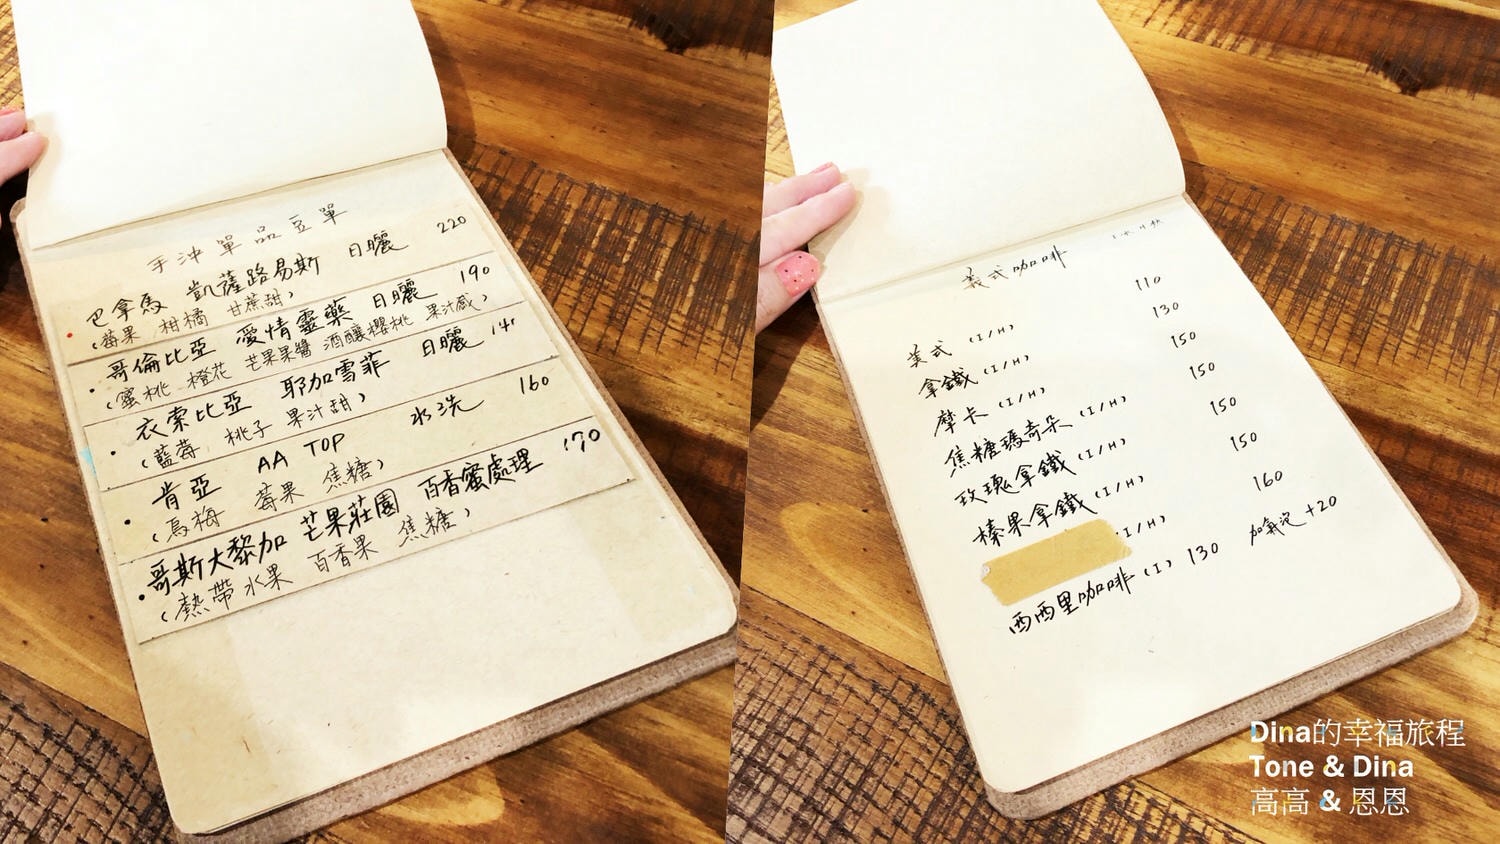 手沖單品豆單
巴拿馬 凱薩路易斯 日曬 220
(莓果 柑橘 甘蔗甜)
哥倫比亞 愛情靈藥 日曬 190
(蜜桃 橙花 芒果果醬 酒釀櫻桃 果汁感)
衣索比亞 耶加雪菲 日曬
(藍莓 桃子 果汁甜)
肯亞 AA TOP 水洗 160
(烏梅 莓果 焦糖)
哥斯大黎加 芒果莊園 百香蜜處理 170
(熱帶水果 百香果 焦糖)
義式咖啡
美式 (I/H) 110
拿鐵 (I/H) 130
摩卡 (I/H) 150
焦糖瑪奇朵 (I/H) 150
玫瑰拿鐵 (I/H) 150
榛果拿鐵 (I/H) 150
(I/H) 160
西西里咖啡 (I) 130 加氣泡 +20
Dina的幸福旅程
Tone & Dina
高高 & 恩恩